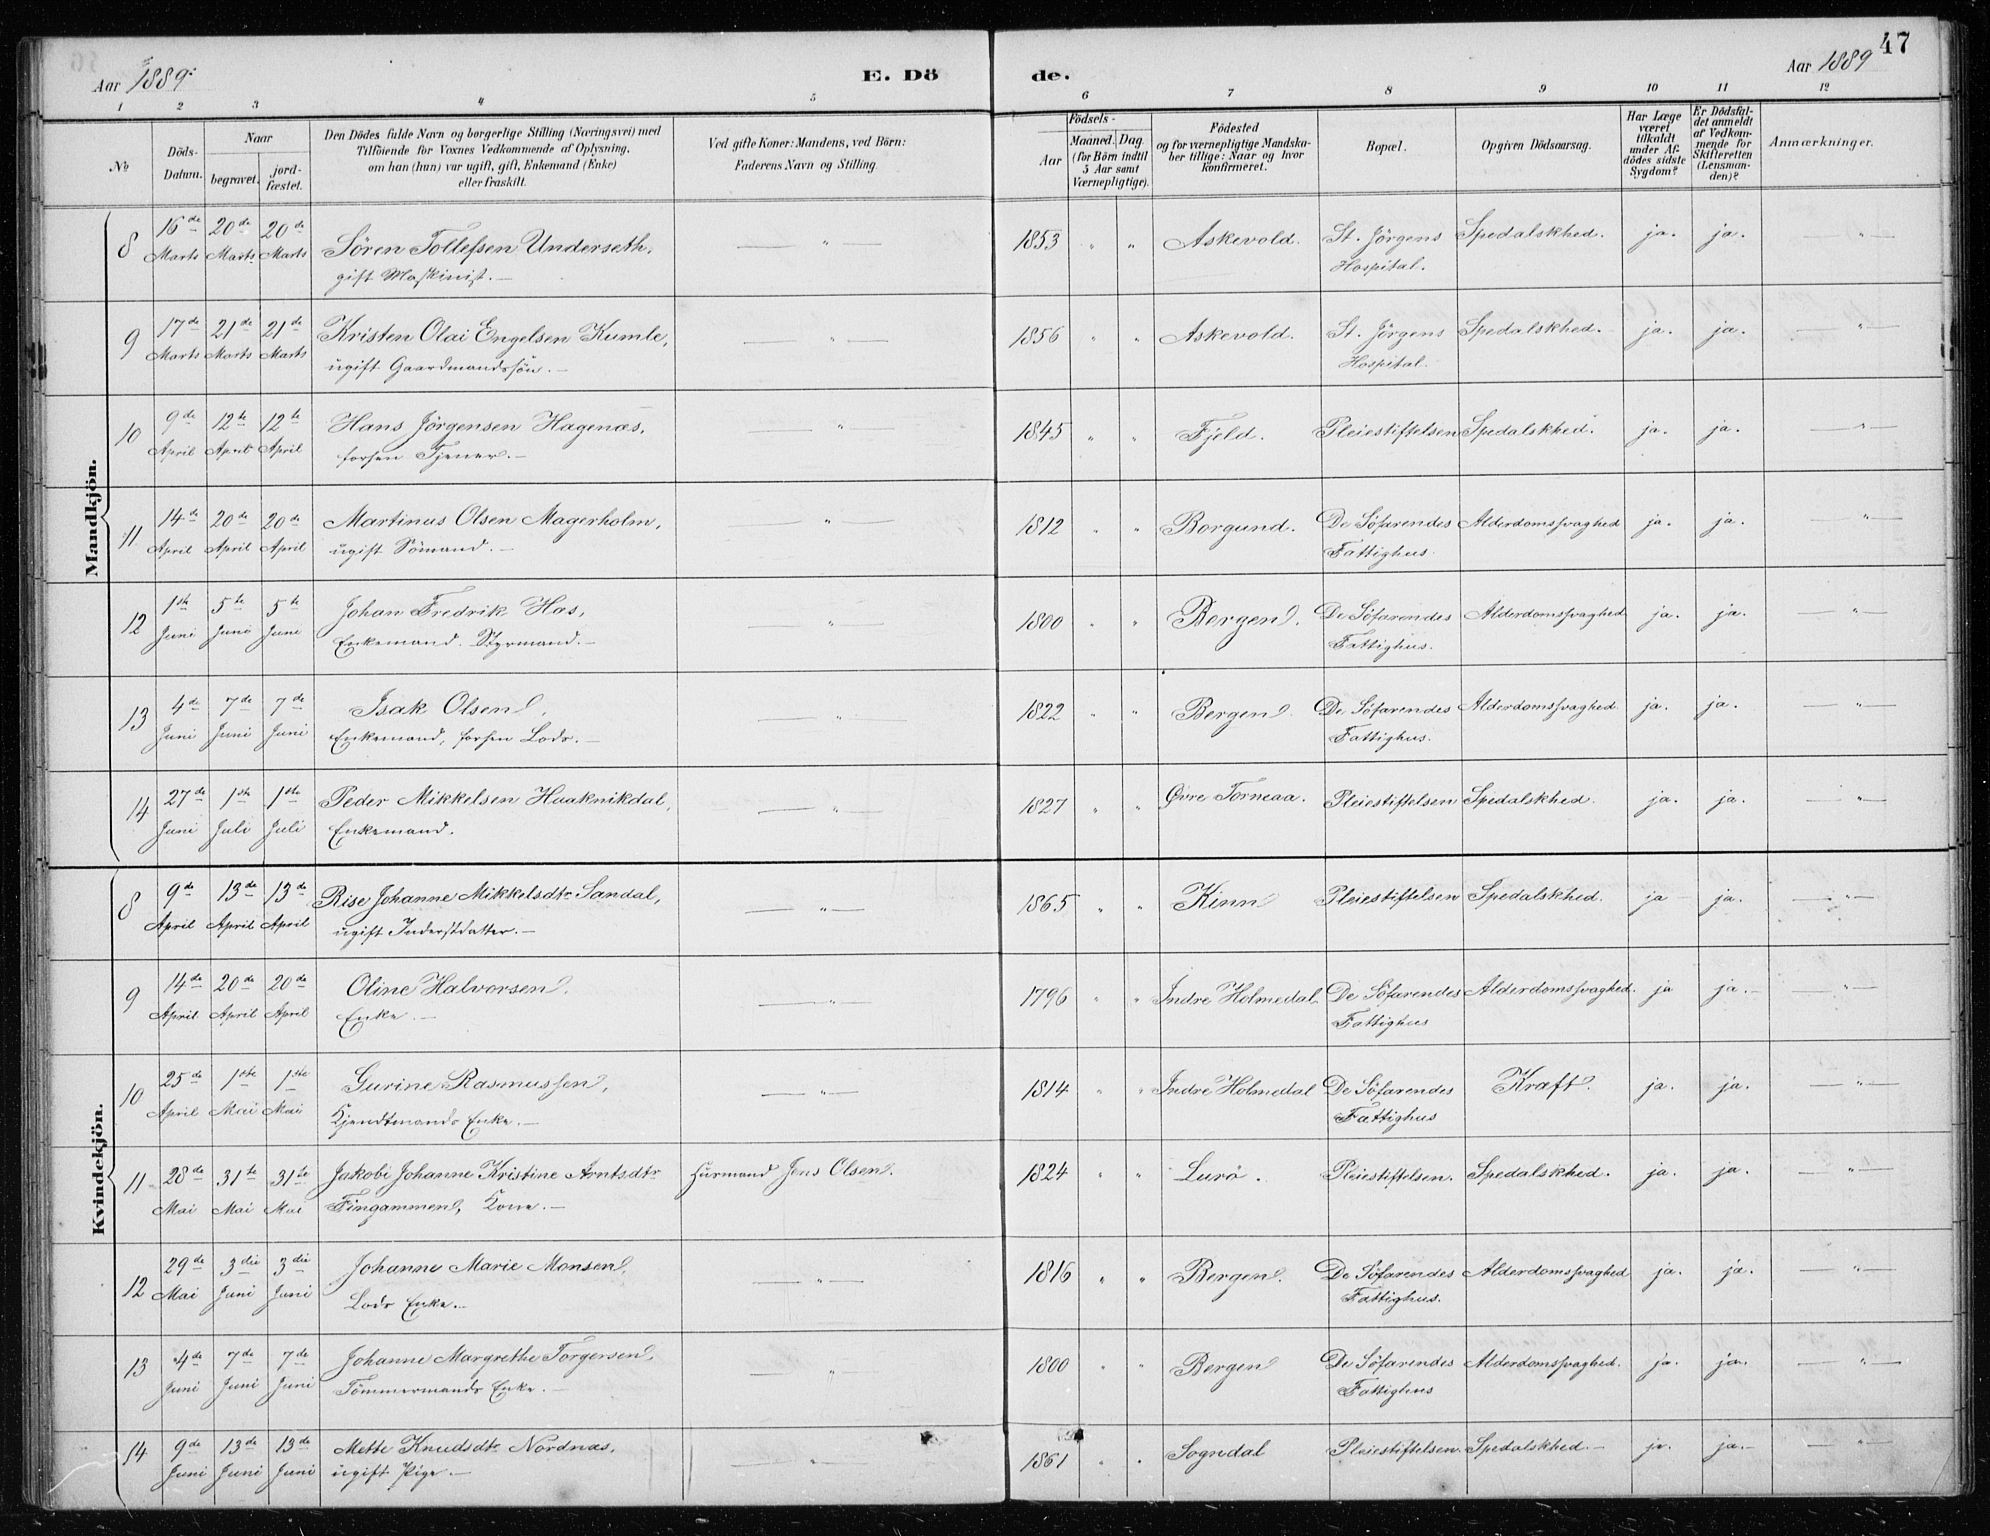 47
Aar 1889. E. Dö de. Aar 1889
1 2 3 4 5 6 7 8 9 10 11 12
No
Döds-Datum.
Naar
begravet.
jord-fæstet.
Den Dödes fulde Navn og borgerlige Stilling (Næringsvei) med
Tilföiende for Voxnes Vedkommende af Oplysning,
om han (hun) var ugift, gift, Enkemand (Enke)
eller fraskilt.
Ved gifte Koner: Mandens, ved Börn:
Faderens Navn og Stilling.
Födsels-
Aar
Maaned. Dag.
(for Börn indtil
5 Aar samt
Værnepligtige).
Födested
og for værnepligtige Mandska-
ber tillige: Naar og hvor
konfirmeret.
Bopæl.
Opgiven Dödsaarsag.
Har Læge
været
tilkaldt
under Af-
dödes sidste
Sygdom?
Er Dödsfal-
det anmeldt
af Vedkom-
mende for
Skifteretten
(Lensman-
den)?
Anmærkninger.
Mandkjön.
8 16de 20de 20de Sören Tollefsen Underseth, — " — 1853 " " Askevold. St. Jörgens Spedalskhed. ja. ja. — " —
Marts Marts Marts gift Maskinist. — Hospital.
9 17de 21de 21de Kristen Olai Engelsen Kumle, — " — 1856 " " Askevold. St. Jörgens Spedalskhed. ja. ja. — " —
Marts Marts Marts ugift Gaardmandssön. — Hospital.
10 9de 12te 12te Hans Jörgensen Hagenæs, — " — 1845 " " Fjeld. Pleiestiftelsen Spedalskhed. ja. ja. — " —
April April April forhen Tjener. —
11 14de 20de 20de Martinus Olsen Magerholm, " — 1812 " " Borgund. De Söfarendes Alderdomssvaghed ja. ja. " —
April April April ugift Sömand. — Fattighus.
12 1ste 5te 5te Johan Fredrik Has, — " — 1800 " " Bergen. De Söfarendes Alderdomssvaghed ja. ja. — " —
Juni Juni Juni Enkemand. Styrmand. — Fattighus.
13 4de 7de 7de Isak Olsen, — " 1822 " " Bergen. De Söfarendes Alderdomssvaghed ja. ja. — " —
Juni Juni Juni Enkemand, forhen Lods. — Fattighus.
14 27de 1ste 1ste Peder Mikkelsen Haaknikdal, — " — 1827 " " Øvre Torneaa. Pleiestiftelsen Spedalskhed. ja. ja. — " —
Juni Juli Juli Enkemand.
Kvindekjön.
8 9de 13de 13de Rise Johanne Mikkelsdtr Sandal, — " — 1865 " " Kinn Pleiestiftelsen Spedalskhed. ja ja. — " —
April April April ugift Inderstdatter. —
9 14de 20de 20de Oline Halvorsen. — " 1796 " " Indre Holmedal. De Söfarendes Alderdomssvaghed. ja ja. — — " —
April April April Enke. — Fattighus
10 25de 1ste 1ste Gurine Rasmussen, — " — 1814 " " Indre Holmedal De Söfarendes Kræft. ja. ja. — " —
April Mai Mai Kjendtmands Enke. — Fattighus
11 28de 31te 31te Jakobi Johanne Kristine Arntsdtr Huusmand Jens Olsen. 1824 " " Lurö. Pleiestiftelsen. Spedalskhed. ja. ja. — " —
Mai Mai Mai Fingammen, Kone. —
12 29de 3die 3die Johanne Marie Monsen, — " — 1816 " " Bergen. De Söfarendes Alderdomssvaghed ja. ja. — " —
Mai Juni Juni Lods Enke. — Fattighus.
13 4de 7de 7de Johanne Margrethe Torgersen, — " — 1800 " " Bergen De Söfarendes Alderdomssvaghed. ja. ja. — " —
Juni Juni Juni Tömmermands Enke. — Fattighus
14 9de 13de 13de Mette Knudsdtr Nordnæs, — " 1861 " " Sogndal Pleiestiftelsen. Spedalskhed. — ja. ja. — — " —
Juni Juni Juni ugift Pige. —